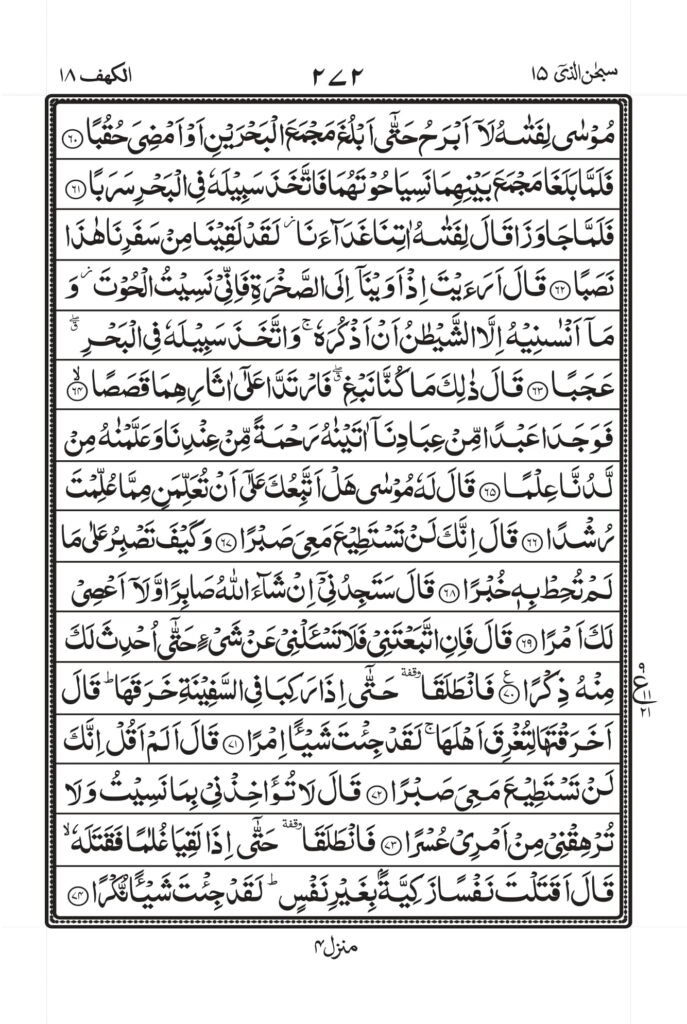 سبحٰن الذیٓ ۱۵
۲۷۲
الکهف ۱۸
مُوۡسٰى لِفَتٰٮهُ لَاۤ اَبۡرَحُ حَتّٰۤى اَبۡلُغَ مَجۡمَعَ الۡبَحۡرَيۡنِ اَوۡ اَمۡضِىَ حُقُبًا ۶۰
فَلَمَّا بَلَغَا مَجۡمَعَ بَيۡنِهِمَا نَسِيَا حُوۡتَهُمَا فَاتَّخَذَ سَبِيۡلَهٗ فِى الۡبَحۡرِ سَرَبًا ۶۱
فَلَمَّا جَاوَزَا قَالَ لِفَتٰٮهُ اٰتِنَا غَدَآءَنَا ز لَقَدۡ لَقِيۡنَا مِنۡ سَفَرِنَا هٰذَا
نَصَبًا ۶۲ قَالَ اَرَءَيۡتَ اِذۡ اَوَيۡنَاۤ اِلَى الصَّخۡرَةِ فَاِنِّىۡ نَسِيۡتُ الۡحُوۡتَ ز وَ
مَاۤ اَنۡسٰٮنِيۡهُ اِلَّا الشَّيۡطٰنُ اَنۡ اَذۡكُرَهٗ‌ۚ وَاتَّخَذَ سَبِيۡلَهٗ فِى الۡبَحۡرِ ‌ۖق
عَجَبًا ۶۳ قَالَ ذٰلِكَ مَا كُنَّا نَبۡغِ ‌ۖق فَارۡتَدَّا عَلٰٓى اٰثَارِهِمَا قَصَصًا ۙ ۶۴
فَوَجَدَا عَبۡدًا مِّنۡ عِبَادِنَاۤ اٰتَيۡنٰهُ رَحۡمَةً مِّنۡ عِنۡدِنَا وَعَلَّمۡنٰهُ مِنۡ
لَّدُنَّا عِلۡمًا ۶۵ قَالَ لَهٗ مُوۡسٰى هَلۡ اَتَّبِعُكَ عَلٰٓى اَنۡ تُعَلِّمَنِ مِمَّا عُلِّمۡتَ
رُشۡدًا ۶۶ قَالَ اِنَّكَ لَنۡ تَسۡتَطِيۡعَ مَعِىَ صَبۡرًا ۶۷ وَكَيۡفَ تَصۡبِرُ عَلٰى مَا
لَمۡ تُحِطۡ بِهٖ خُبۡرًا ۶۸ قَالَ سَتَجِدُنِىۡۤ اِنۡ شَآءَ اللّٰهُ صَابِرًا وَّلَاۤ اَعۡصِىۡ
لَكَ اَمۡرًا ۶۹ قَالَ فَاِنِ اتَّبَعۡتَنِىۡ فَلَا تَسۡـَٔـلۡنِىۡ عَنۡ شَىۡءٍ حَتّٰٓى اُحۡدِثَ لَكَ
مِنۡهُ ذِكۡرًا ع ۷۰ فَانْطَلَقَا وقفة حَتّٰۤى اِذَا رَكِبَا فِى السَّفِيۡنَةِ خَرَقَهَا‌ ؕ قَالَ
اَخَرَقۡتَهَا لِتُغۡرِقَ اَهۡلَهَا‌ ۚ لَقَدۡ جِئۡتَ شَيۡـًٔـا اِمۡرًا ۷۱ قَالَ اَلَمۡ اَقُلۡ اِنَّكَ
لَنۡ تَسۡتَطِيۡعَ مَعِىَ صَبۡرًا ۷۲ قَالَ لَا تُؤَاخِذۡنِىۡ بِمَا نَسِيۡتُ وَلَا
تُرۡهِقۡنِىۡ مِنۡ اَمۡرِىۡ عُسۡرًا ۷۳ فَانْطَلَقَا وقفة حَتّٰٓى اِذَا لَقِيَا غُلٰمًا فَقَتَلَهٗ ۙ
قَالَ اَقَتَلۡتَ نَفۡسًا زَكِيَّةً ۢ بِغَيۡرِ نَفۡسٍ ؕ لَـقَدۡ جِئۡتَ شَيۡـًٔـا نُّكۡرًا ۷۴
۹
ع
۱۱
۲۱
منزل ۴